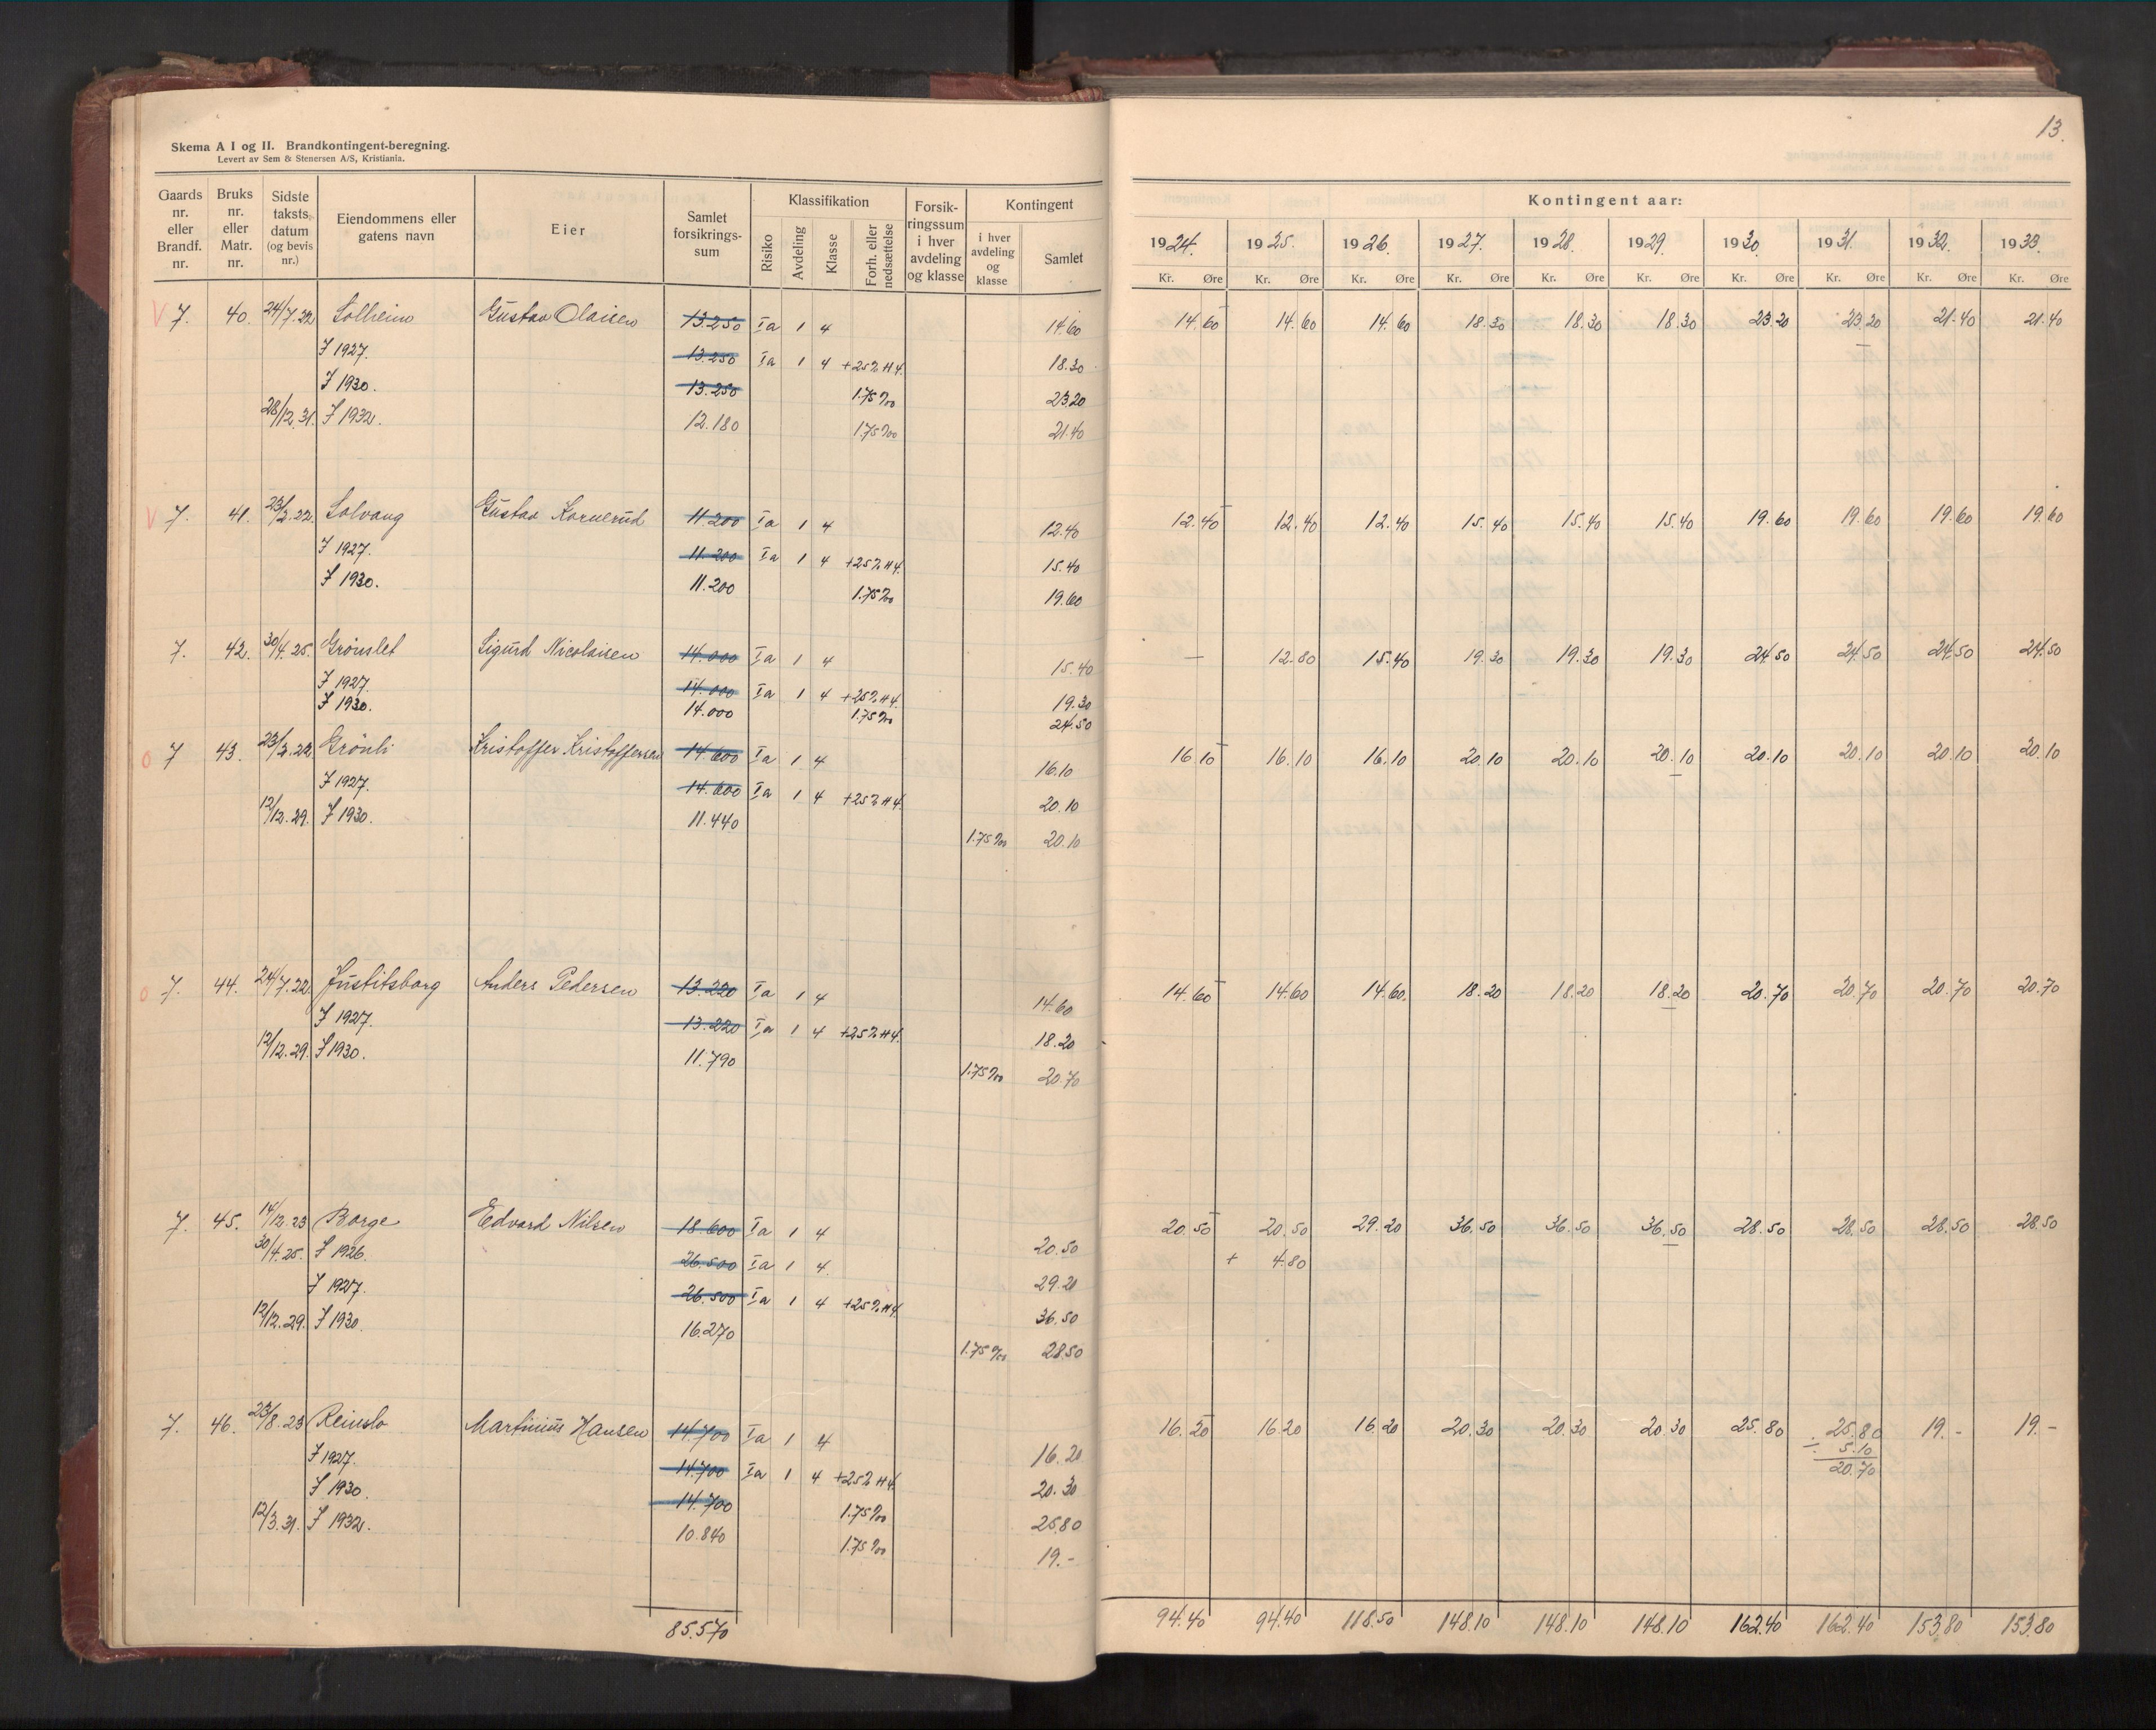 13.
Skema A I og II. Brandkontingent-beregning.
Levert av Sem & Stenersen A/S, Kristiania.
Gaards nr. eller Brandf. nr. | Bruks nr. eller Matr. nr. | Sidste takstsdatum (og bevis nr.) | Eiendommens eller gatens navn | Eier | Samlet forsikrings-sum | Klassifikation | Risiko | Avdeling | Klasse | Forh. eller nedsættelse | Forsik-ringssum i hver avdeling og klasse | Kontingent | i hver avdeling og klasse | Samlet
Kontingent aar:
1924. 1925. 1926. 1927. 1928. 1929. 1930. 1931. 1932. 1933.
Kr. Øre Kr. Øre Kr. Øre Kr. Øre Kr. Øre Kr. Øre Kr. Øre Kr. Øre Kr. Øre Kr. Øre
V 7. 40. 24/7.22 Solheim Gustav Olaisen 13.250 Ia 1 4 14.60 14.60 14.60 14.60 18.30 18.30 18.30 23.20 23.20 21.40 21.40
F 1927. 13.250 Ia 1 4 +25% H4. 18.30
F 1930. 13.250 1.75‰ 23.20
28/12.31. F 1932. 12.180 1.75‰ 21.40
V 7. 41. 23/2.22. Solvang Gustav Kornerud 11.200 Ia 1 4 12.40 12.40 12.40 12.40 15.40 15.40 15.40 19.60 19.60 19.60 19.60
F 1927. 11.200 Ia 1 4 +25% H4. 15.40
F 1930. 11.200 1.75‰ 19.60
7. 42. 30/4.25. Grönslet Sigurd Nicolaisen 14.000 Ia 1 4 15.40 — 12.80 15.40 19.30 19.30 19.30 24.50 24.50 24.50 24.50
F 1927. 14.000 Ia 1 4 +25% H4. 19.30
F 1930. 14.000 1.75‰ 24.50
o 7 43. 23/2.22. Grönli Kristoffer Kristoffersen 14.600 Ia 1 4 16.10 16.10 16.10 16.10 20.10 20.10 20.10 20.10 20.10 20.10 20.10
F 1927. 14.600 Ia 1 4 +25% H4. 20.10
12/12.29. F 1930. 11.440 1.75‰ 20.10
o 7. 44. 24/7.22. Justitsborg Anders Pedersen 13.220 Ia 1 4 14.60 14.60 14.60 14.60 18.20 18.20 18.20 20.70 20.70 20.70 20.70
F 1927. 13.220 Ia 1 4 +25% H4. 18.20
12/12.29. F 1930. 11.790 1.75‰ 20.70
7. 45. 14/12.23 Borge Edvard Nilsen 18.600 Ia 1 4 20.50 20.50 20.50 29.20 36.50 36.50 36.50 28.50 28.50 28.50 28.50
30/4.25. F 1926. 26.500 Ia 1 4. 29.20 + 4.80
F 1927. 26.500 Ia 1 4 +25% H4. 36.50
12/12.29. F 1930. 16.270 1.75‰ 28.50
7. 46. 23/8.23 Reinslo Martinius Hansen 14.700 Ia 1 4 16.20 16.20 16.20 16.20 20.30 20.30 20.30 25.80 25.80 19.- 19.-
F 1927. 14.700 Ia 1 4 +25% H4. 20.30 ÷ 5.10
F 1930. 14.700 1.75‰ 25.80 20.70
12/3.31. F 1932. 10.840 1.75‰ 19.-
85.570 94.40 94.40 118.50 148.10 148.10 148.10 162.40 162.40 153.80 153.80